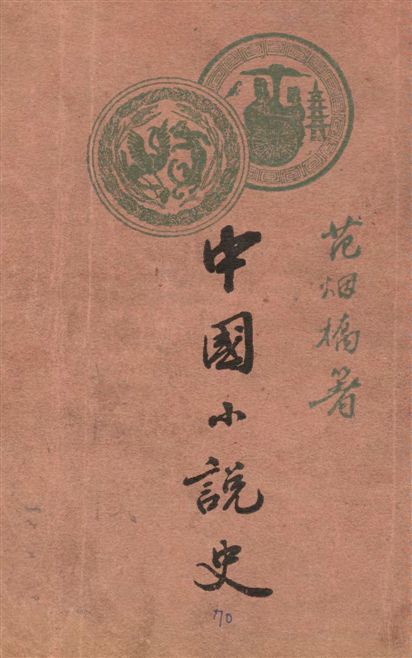 范烟橋著
中國小説史
70